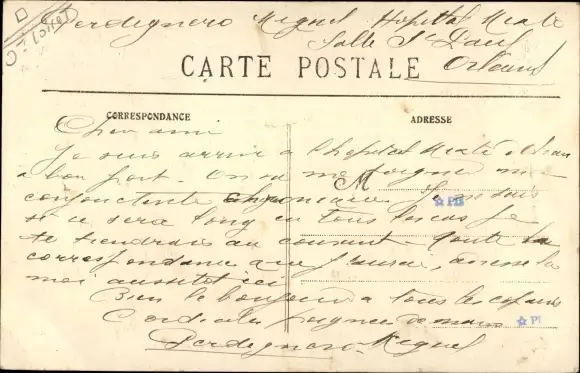 Perdeguero Miguel Hopital Mixte
Salle St Paul
Orléans
CARTE POSTALE
CORRESPONDANCE
ADRESSE
Cher ami
Je suis arrivé à l'hopital Mixte
à bon port. On va me soigner ma
conjonctivite M Je ne sais
si ce sera long en tous les cas je
te tiendrais au courant - toute la
correspondance que j'aurai, adresse la
moi aussitot ici
Bien le bonjour à tous les copains
Cordiales poignées de mains
Perdeguero Miguel